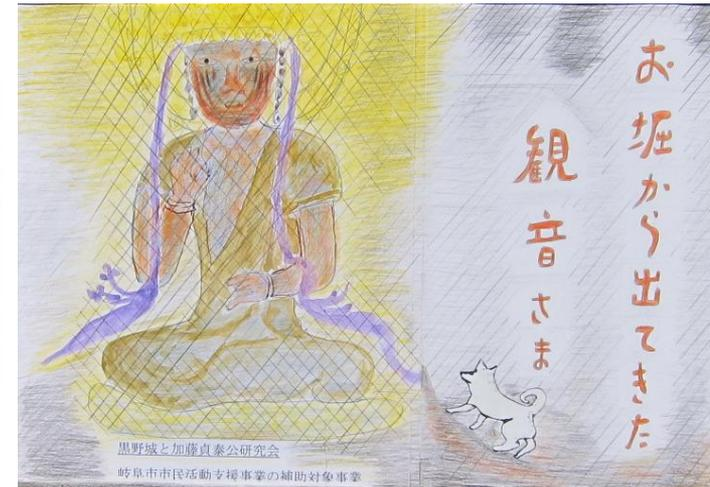 お堀から出てきた
観音さま
黒野城と加藤貞泰公研究会
岐阜市市民活動支援事業の補助対象事業